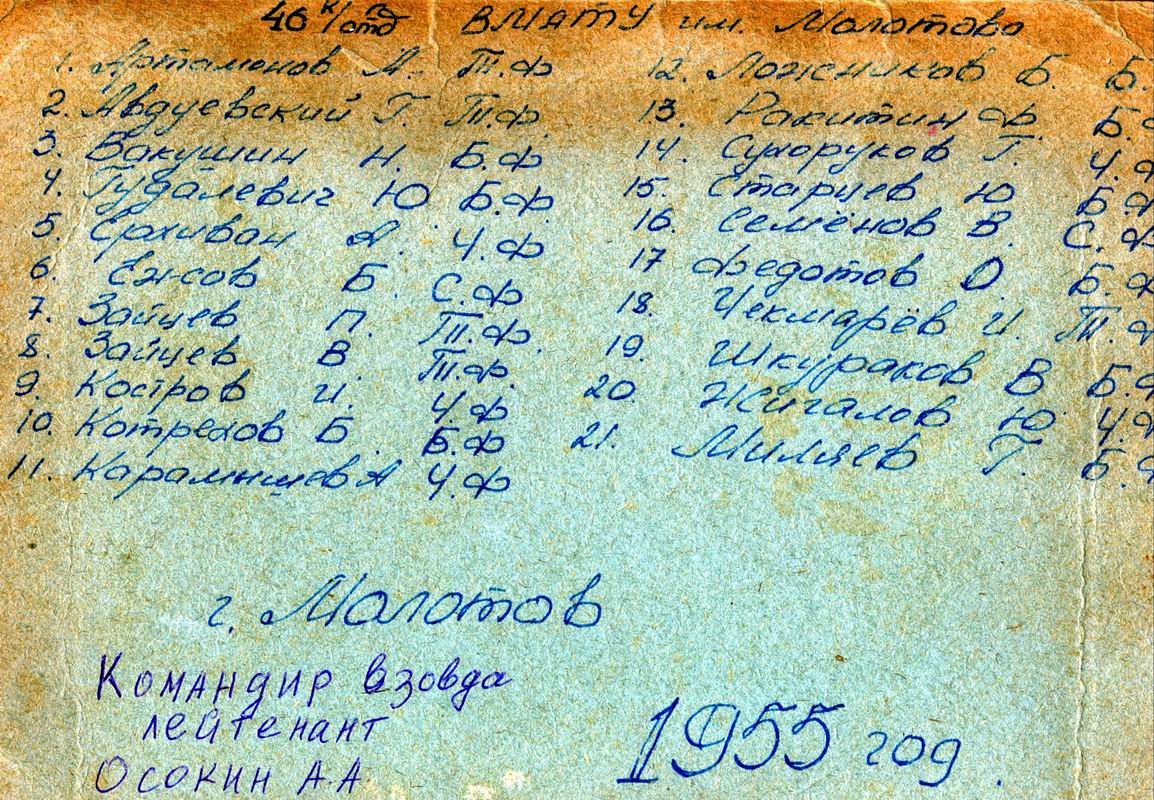 46 к/отд ВМАТУ им. Молотова
1. Артамонов А. Т.Ф
2. Авдуевский Г. Т.Ф.
3. Вакушин Н. Б.Ф
4. Гудалевич Ю Б.Ф.
5. А. Ч.Ф
6. Ежов Б. С.Ф
7. Зайцев П. Т.Ф.
8. Зайцев В. Т.Ф.
9. Костров И. Ч.Ф
10. Котрехов Б. Б.Ф
11. Карамышев А Ч.Ф
12. Ложников Б. Б.
13. Ракитин Ф. Б.Ф
14. Сухоруков Г. Ч.Ф
15. Старцев Ю Б.Ф
16. Семёнов В. С.Ф
17 Федотов О. Б.Ф
18. Чекмарёв И. Т.Ф
19. Шкураков В. Б.Ф
20. Жигалов Ю. Ч.Ф
21. Миляев Г. Б.Ф
г. Молотов
Командир взовда
лейтенант
Осокин А.А
1955 год.